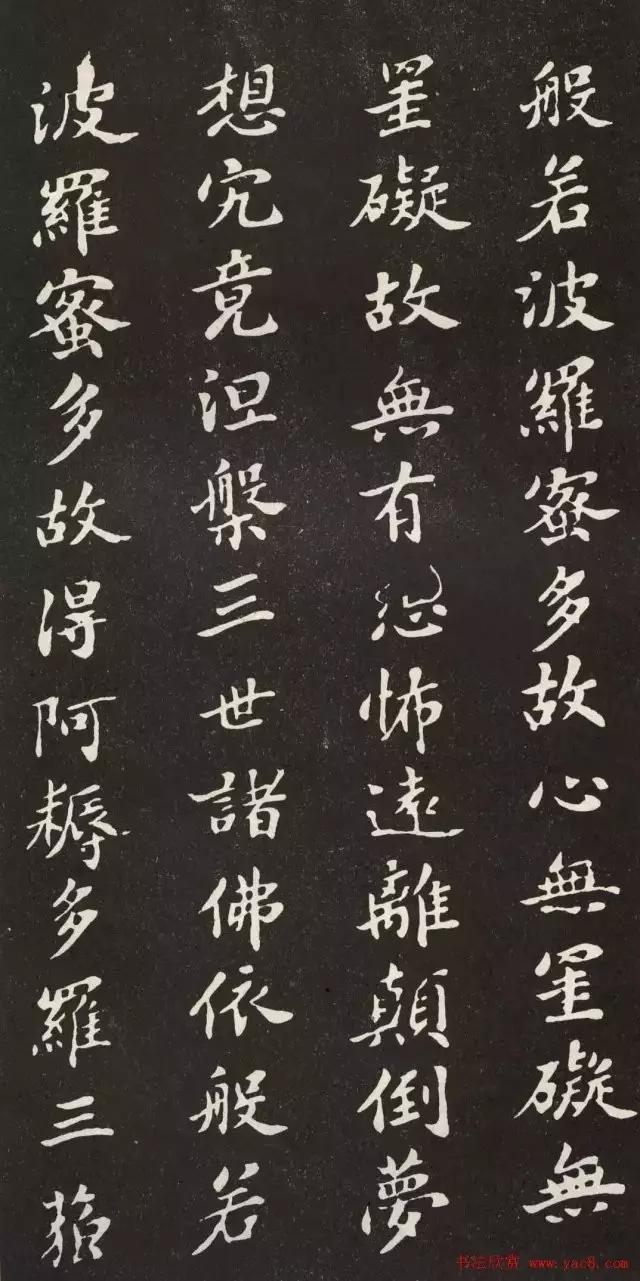 般若波羅蜜多故心無罣礙無
罣礙故無有恐怖遠離顛倒夢
想究竟涅槃三世諸佛依般若
波羅蜜多故得阿耨多羅三藐
书法欣赏 www.yac8.com